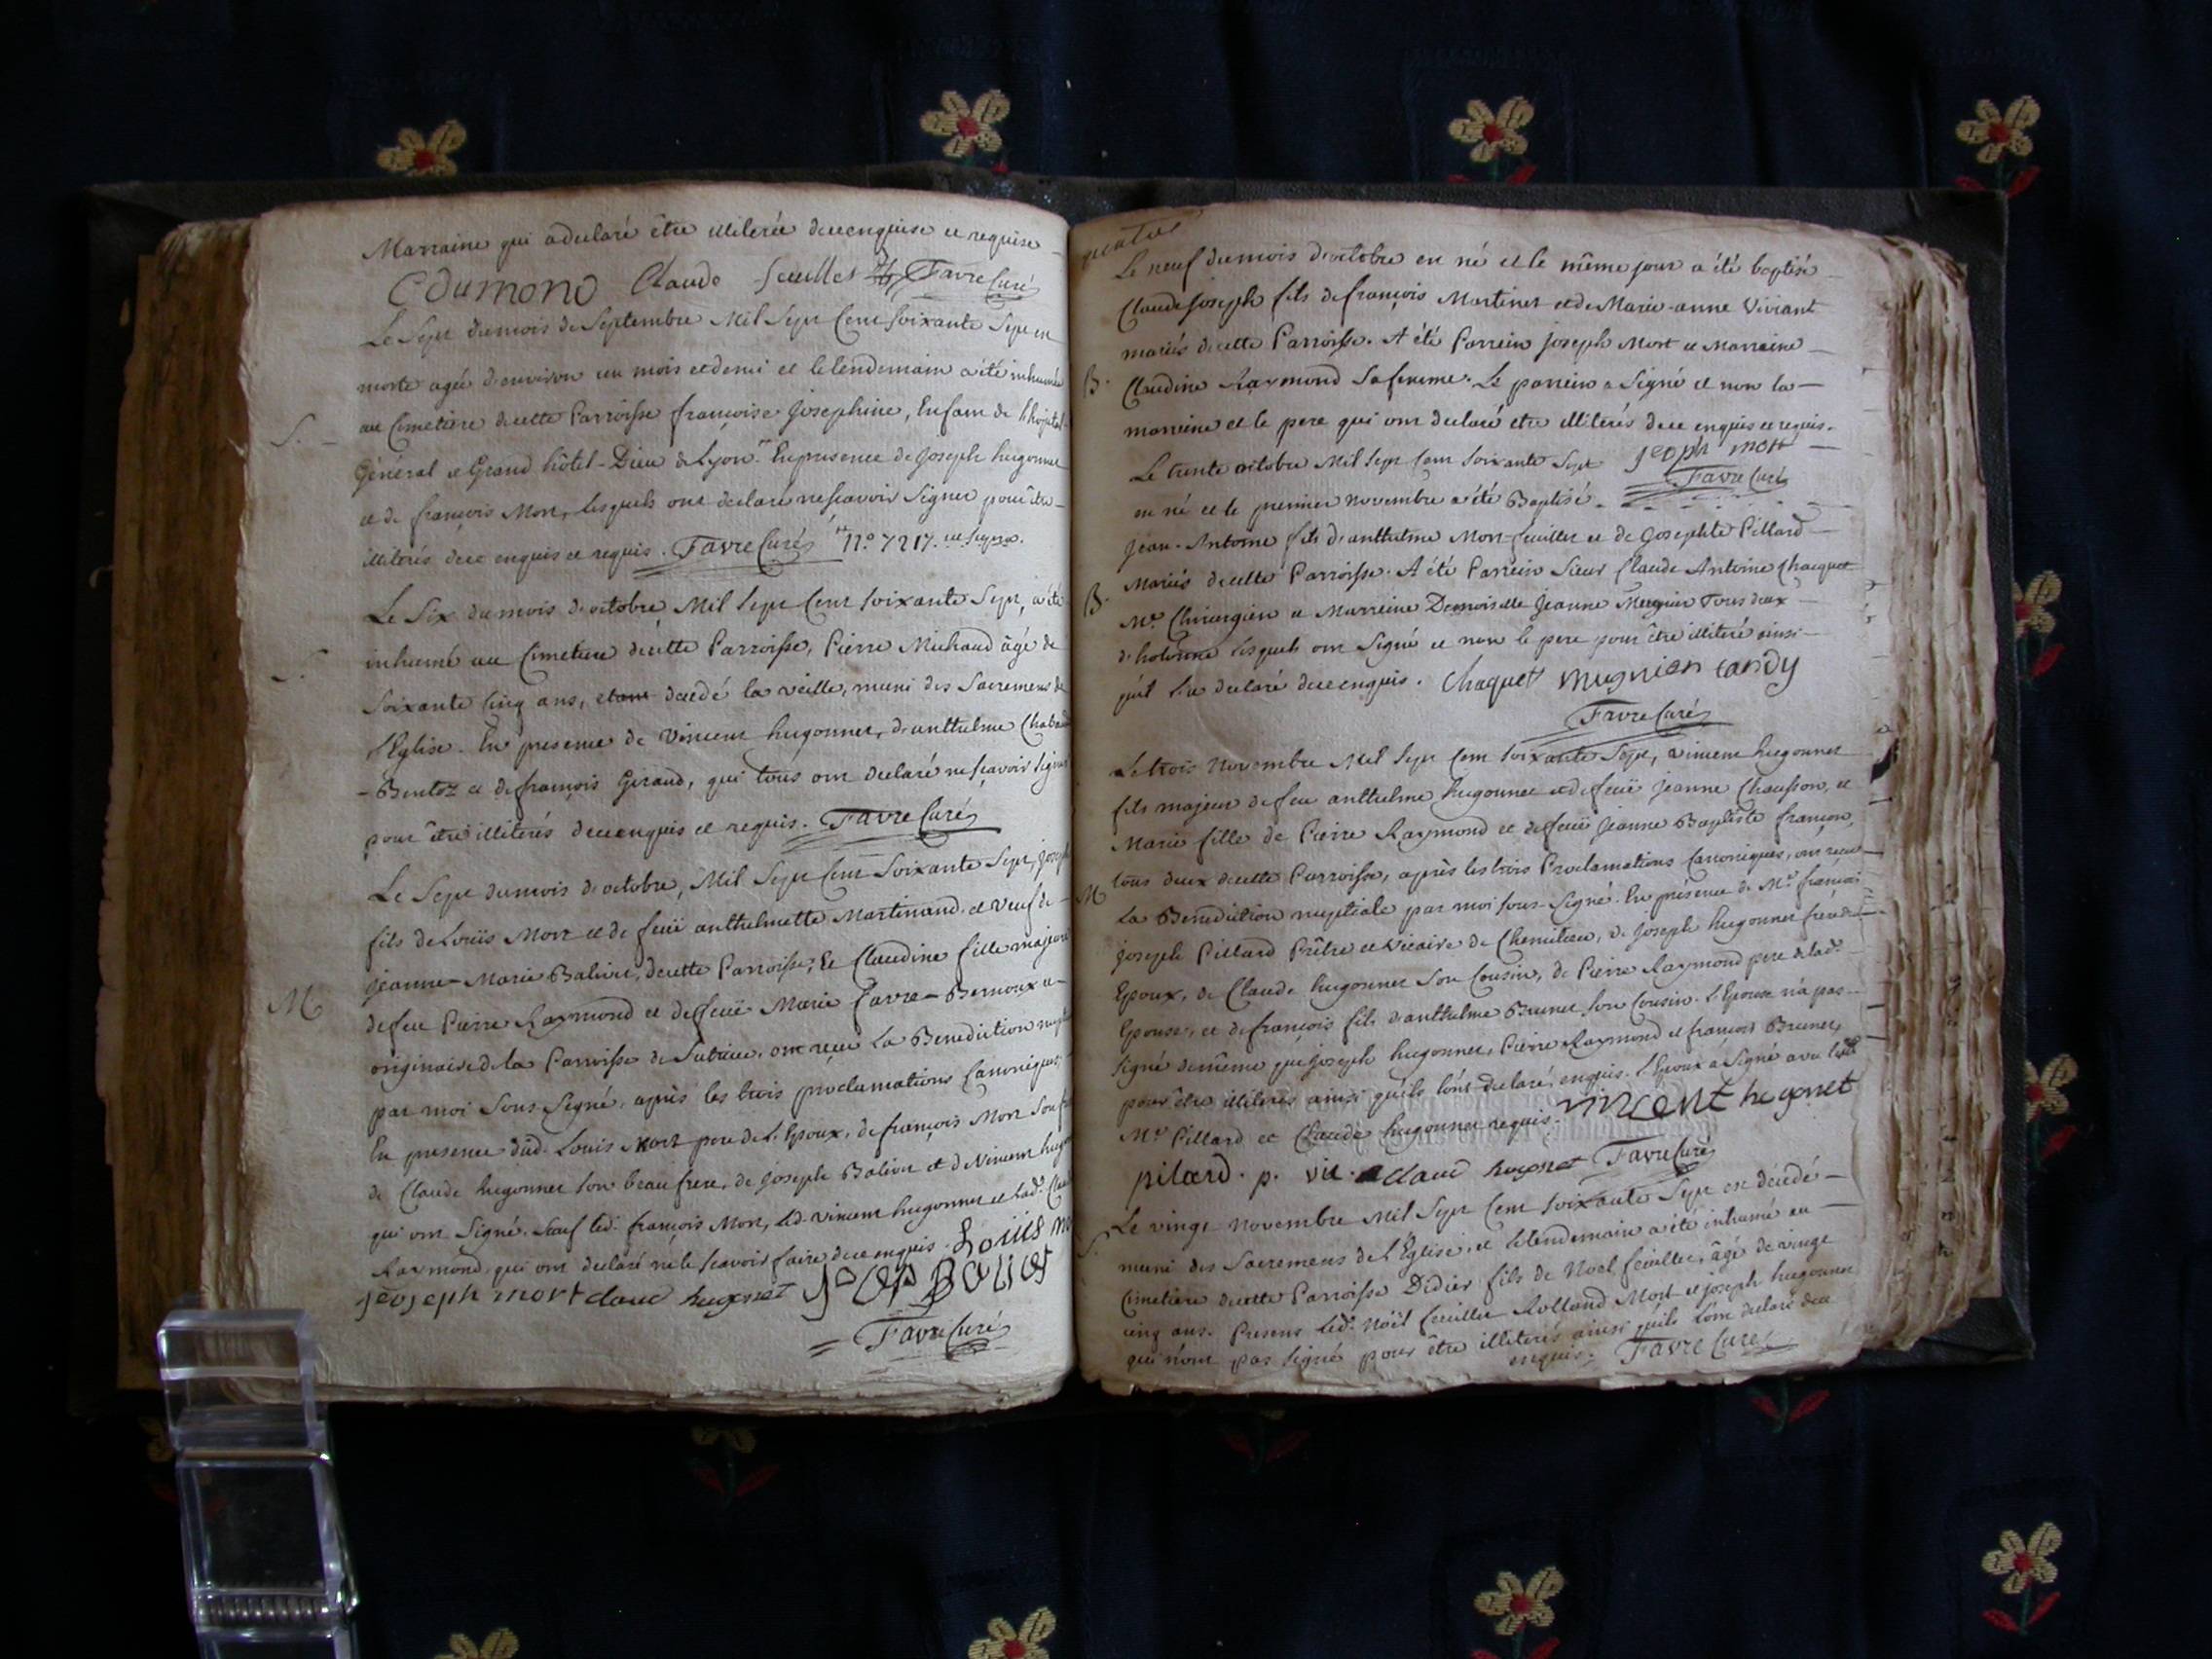 Marraine qui a declaré être illiterée de ce enquise et requise
Cdumond Claude feuillet Favre Curé
Le Sept du mois de Septembre Mil Sept Cent Soixante Sept est
morte agée d'environ un mois et demi et le lendemain a été inhumée
S.
au Cimetiere de cette Parroisse françoise Josephine, Enfant de l'hopital
Général et Grand hôtel-Dieu de Lyon. En presence de Joseph hugonnet
et de françois Mort, lesquels ont declaré ne scavoir Signer pour être
illiterés de ce enquis et requis. Favre Curé N.o 7217.
Le Six du mois d'octobre Mil Sept Cent soixante Sept, a été
inhumé au Cimetiere de cette Parroisse, Pierre Michaud âgé de
S.
Soixante Cinq ans, decedé la veille, muni des Sacremens de
l'Eglise. En presence de Vincent hugonnet, d'anthelme
et de françois Giraud, qui tous ont declaré ne scavoir Signer
pour être illiterés de ce enquis et requis. Favre Curé
Le Sept du mois d'octobre, Mil Sept Cent Soixante Sept, joseph
fils de Loüis Mort et de feüe anthelmette Martinand, et veuf de
jeanne-Marie Balivet, de cette Parroisse, Et Claudine fille majeure
M
de feu Pierre Raymond et de feüe Marie Favre-Bernoux
originaire de la Parroisse de ont reçu La Benediction
par moi Sous-Signé, après les trois proclamations Canoniques.
En presence dud. Louis Mort pere de l'Epoux, de françois Mort Son
de Claude hugonnet Son beau frere, de Joseph Balivet et de Vincent
qui ont Signé, Sauf led. françois Mort, led. vincent hugonnet et lad.
Raymond, qui ont declaré ne le scavoir faire de ce enquis. Loüis
jeoseph mort claud hugonet
Favre Curé
Le neuf du mois d'octobre est né et le même jour a été baptisé
Claude Joseph fils de françois Martinet et de Marie-anne Viviant
mariés de cette Parroisse. A été Parrein joseph Mort et Marreine
B.
Claudine Raymond Sa femme. Le parrein a Signé et non la
marreine et le pere qui ont declaré etre illiterés de ce enquis et requis.
Le trente octobre Mil Sept Cent Soixante Sept jeoph mort
est né et le premier novembre a été Baptisé Favre Curé
Jean-Antoine fils d'anthelme Mort-feuillet et de Josephte Pillard
Mariés de cette Parroisse. A été Parrein Sieur Claude Antoine Chaquet
B.
M.e Chirurgien et Marreine Demoiselle Jeanne Mugnier Tous deux
lesquels ont Signé et non le pere pour être illiteré ainsi
qu'il l'a declaré de ce enquis. Chaquet mugnier
Favre Curé
Le trois Novembre Mil Sept Cent soixante Sept, vincent hugonnet
fils majeur de feu anthelme hugonnet et de feüe Jeanne Chausson, et
Marie fille de Pierre Raymond et de feüe Jeanne Baptiste françon,
tous deux de cette Parroisse, après les trois Proclamations Canoniques, ont reçu
M
La Benediction nuptiale par moi sous-Signé. En présence de M.e françois
joseph Pillard Prêtre et Vicaire de de Joseph hugonnet frere de
Epoux, de Claude hugonnet Son Cousin, de Pierre Raymond pere de lad.
Epouse, et de françois fils d'anthelme Brunet Son Cousin. L'Epouse n'a pas
Signé de même que joseph hugonnet, Pierre Raymond et françois Brunet,
pour être illiterés ainsi qu'ils l'ont declaré, enquis. L'Epoux a Signé avec led.
M.e Pillard et Claude hugonnet requis. vincent hugonet
pilard. p. vic. claud hugonet Favre Curé
Le vingt novembre Mil Sept Cent Soixante Sept est décédé
S.
muni des Sacremens de l'Église, et le lendemain a été inhumé au
Cimetiere de cette Parroisse Didier fils de Noel feuillet, âgé de vingt
cinq ans. Presens led. Noël feuillet Rolland Mort et joseph hugonnet
qui n'ont pas Signé pour être illiterés ainsi qu'ils l'ont declaré de ce
enquis. Favre Curé